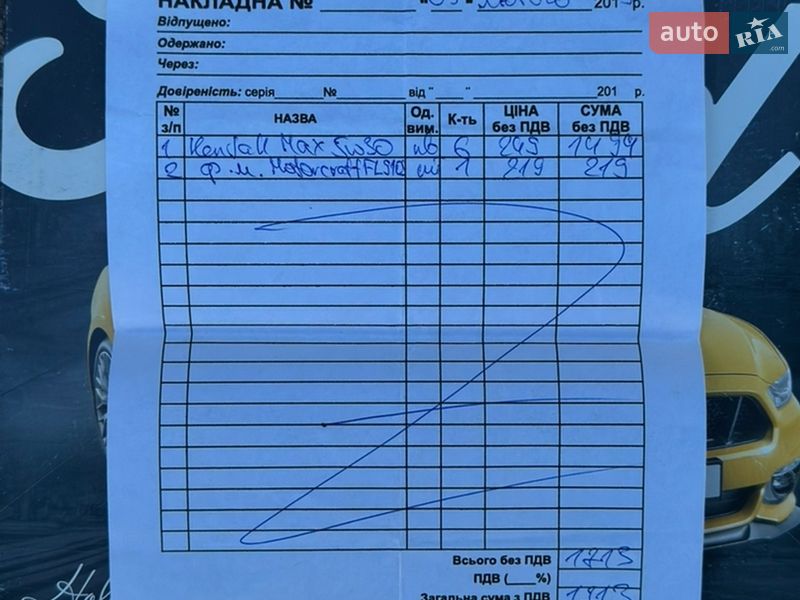 НАКЛАДНА №
201 р.
auto RIA .com
Відпущено:
Одержано:
Через:
Довіреність: серія № від " " 201 р.
№ з/п НАЗВА Од. вим. К-ть ЦІНА без ПДВ СУМА без ПДВ
1 Kendall Max 5w30 6 249 1494
2 ф.м. Motorcraft 1 219 219
Всього без ПДВ 1713
ПДВ ( %)
Загальна сума з ПДВ 1713